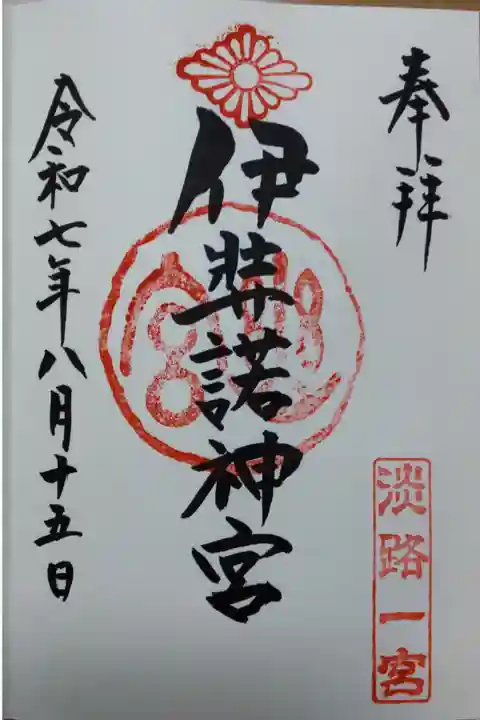 奉拝
淡路一宮
伊弉諾神宮
令和七年八月十五日